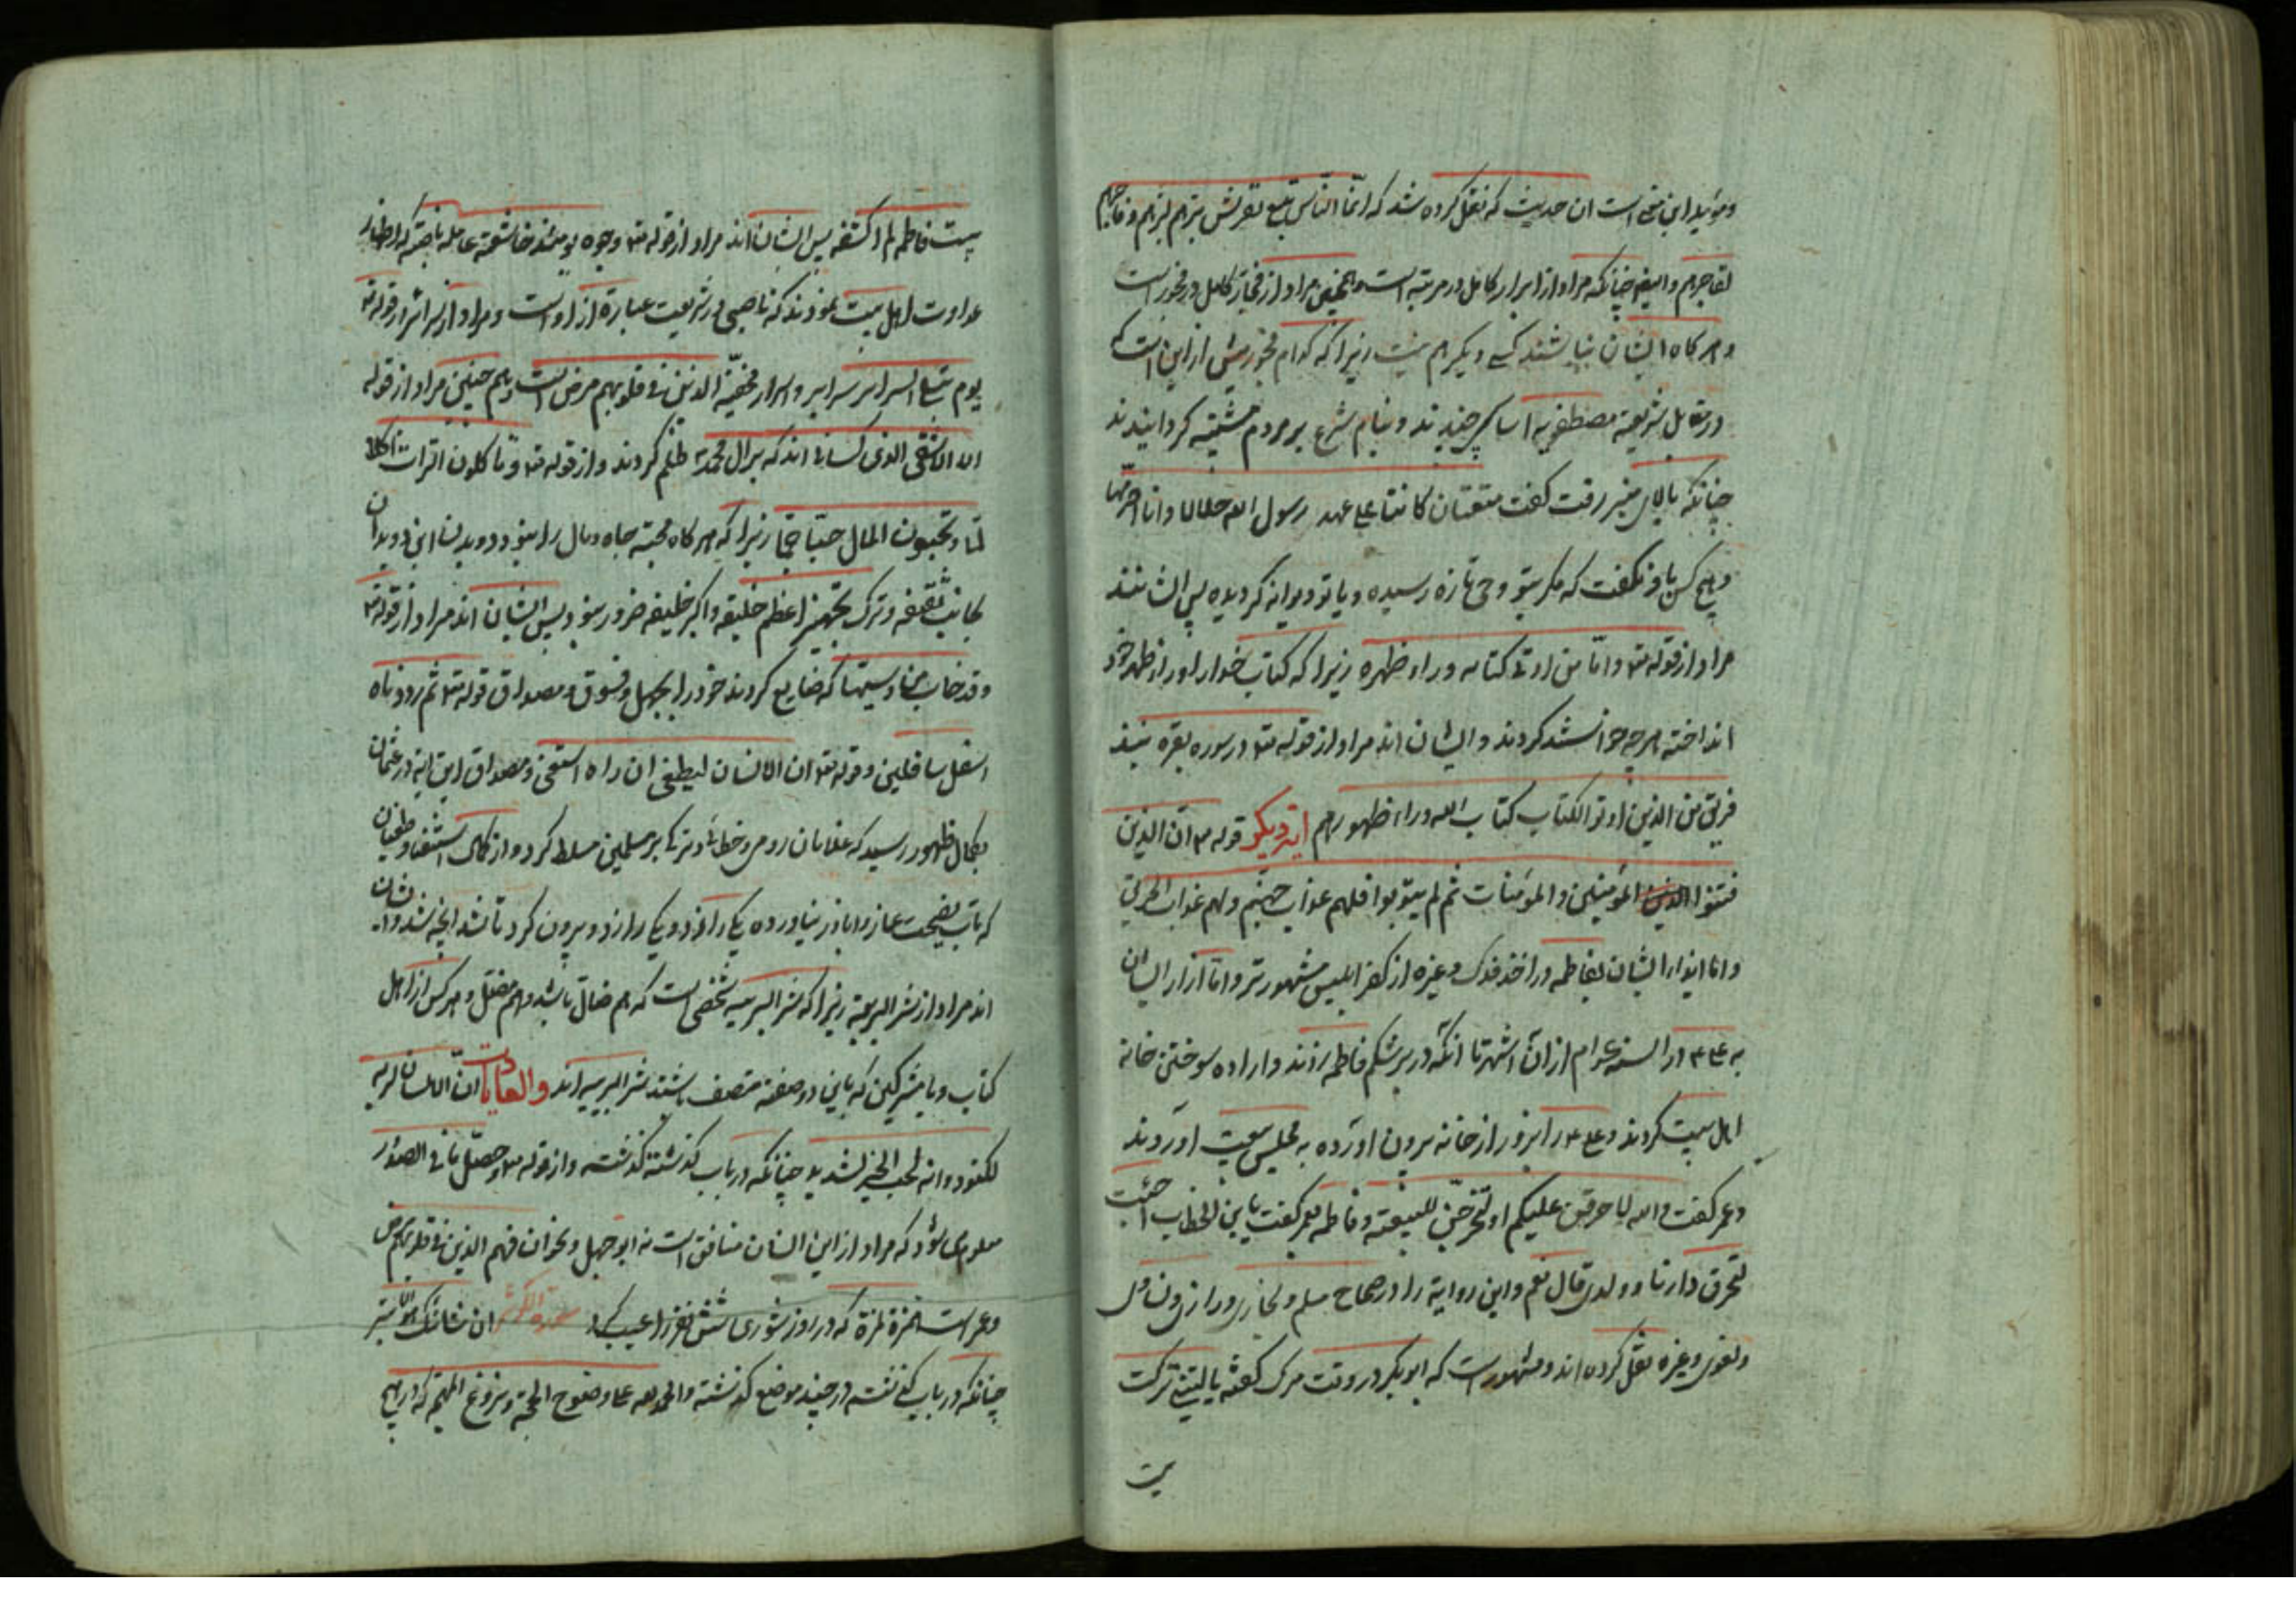 ومؤید این معنی است ان حدیث که نقل کرده شد که انما الناس تبع لقریش برهم لبرهم وفاجرهم
لفاجرهم وایضا چنانکه مراد از ابرار کامل در مرتبه است همچنین مراد از فجار کامل در فجور است
و هر کاه ایشان نباشند کسی دیکر هم نیست زیرا که کدام فجور بیش از این است که
در مقابل شریعة مصطفویه اساس چیدند و بنام شرع بر مردم مشتبه کردانیدند
چنانکه بالای منبر رفت کفت متعتان کانتا علی عهد رسول الله حلالا وانا احرمهما
و هیچ کس باو نکفت که مکر بتو وحی تازه رسیده و یا تو دیوانه کردیده پس ایشانند
مراد از قوله تعه واما من اوتی کتابه وراء ظهره زیرا که کتاب خدا را ور از ظهر خود
انداخته هرچه خواستند کردند و ایشان اند مراد از قوله تعه در سوره بقره نبذ
فریق من الذین اوتو الکتاب کتاب الله وراء ظهورهم ایة دیکر قوله تعه ان الذین
فتنوا المؤمنین والمؤمنات ثم لم یتوبوا فلهم عذاب جهنم ولهم عذاب الحریق
واما ایذاء ایشان بفاطمه در اخذ فدک وغیره از کفر ابلیس مشهورتر واما ازار ایشان
به علی ع در السنه عوام از ان اشهر تا انکه در بر شکم فاطمه زدند و اراده سوختن خانه
اهل بیت کردند و علی ع را بزور از خانه بیرون اورده به مجلس بیعت اوردند
وعمر کفت والله لاحرقن علیکم او لتخرجن للبیعة وفاطمه کفت یابن الخطاب اجئت
لتحرق دارنا وولدی قال نعم واین روایة را در صحاح مسلم و بخاری و
و بغوی وغیره نقل کرده اند ومشهور است که ابوبکر در وقت مرک کفته یا لیتنی ترکت
بیت
بیت فاطمه لم اکشفه پس ایشان اند مراد از قوله تعه وجوه یومئذ خاشعة عاملة ناصبة که اظهار
عداوت اهل بیت نمودند که ناصبی در شریعت عبارة از او است ومراد از سرائر در قوله تعه
یوم تبلی السرائر سرایر و اسرار مخفیة الذین فی قلوبهم مرض است وهم چنین مراد از قوله
الا الاشقی الذی کسانی اند که بر ال محمد ظلم کردند و از قوله تعه وتاکلون التراث اکلا
لما وتحبون المال حبا جما زیرا که هر کاه محبة جاه ومال را
بجانب سقیفه وترک تجهیز اعظم خلیقه واکبر خلیفه ضرور نبود پس ایشان اند مراد از قوله تعه
وقد خاب من دسیها که ضایع کردند خود را بجهل وفسوق ومصداق قوله تعه ثم رددناه
اسفل سافلین وقوله تعه ان الانسان لیطغی ان راه استغنی ومصداق این ایة در عثمان
بکمال ظهور رسید که غلامان رومی و بر مسلمین مسلط کرد و از کمال استغنا وطغیان
که تاب نصیحت عمار و اباذر نیاورده یکی را زد و یکی را از در بیرون کرد تا شد انچه شد وایشان
اند مراد از شر البریة زیرا که شر البریه شخصی است که هم ضال باشد وهم مضل وهر کس از اهل
کتاب و یا مشرکین که باین دو صفة متصف باشند شر البریه اند والعادیات ان الانسان لربه
لکنود وانه لحب الخیر لشدید چنانکه در باب کذشته کذشت واز قوله تعه وحصل ما فی الصدور
معلوم می شود که مراد از این انسان منافق است نه ابو جهل ونحو ان فهم الذین فی قلوبهم مرض
وعمر است همزة لمزة که در روز شوری شش نفر را عیب کرد سورة الکوثر ان شانئک هو الابتر
چنانکه در باب در چند موضع کذشته والحمد لله علی وضوح الحجة وبزوغ